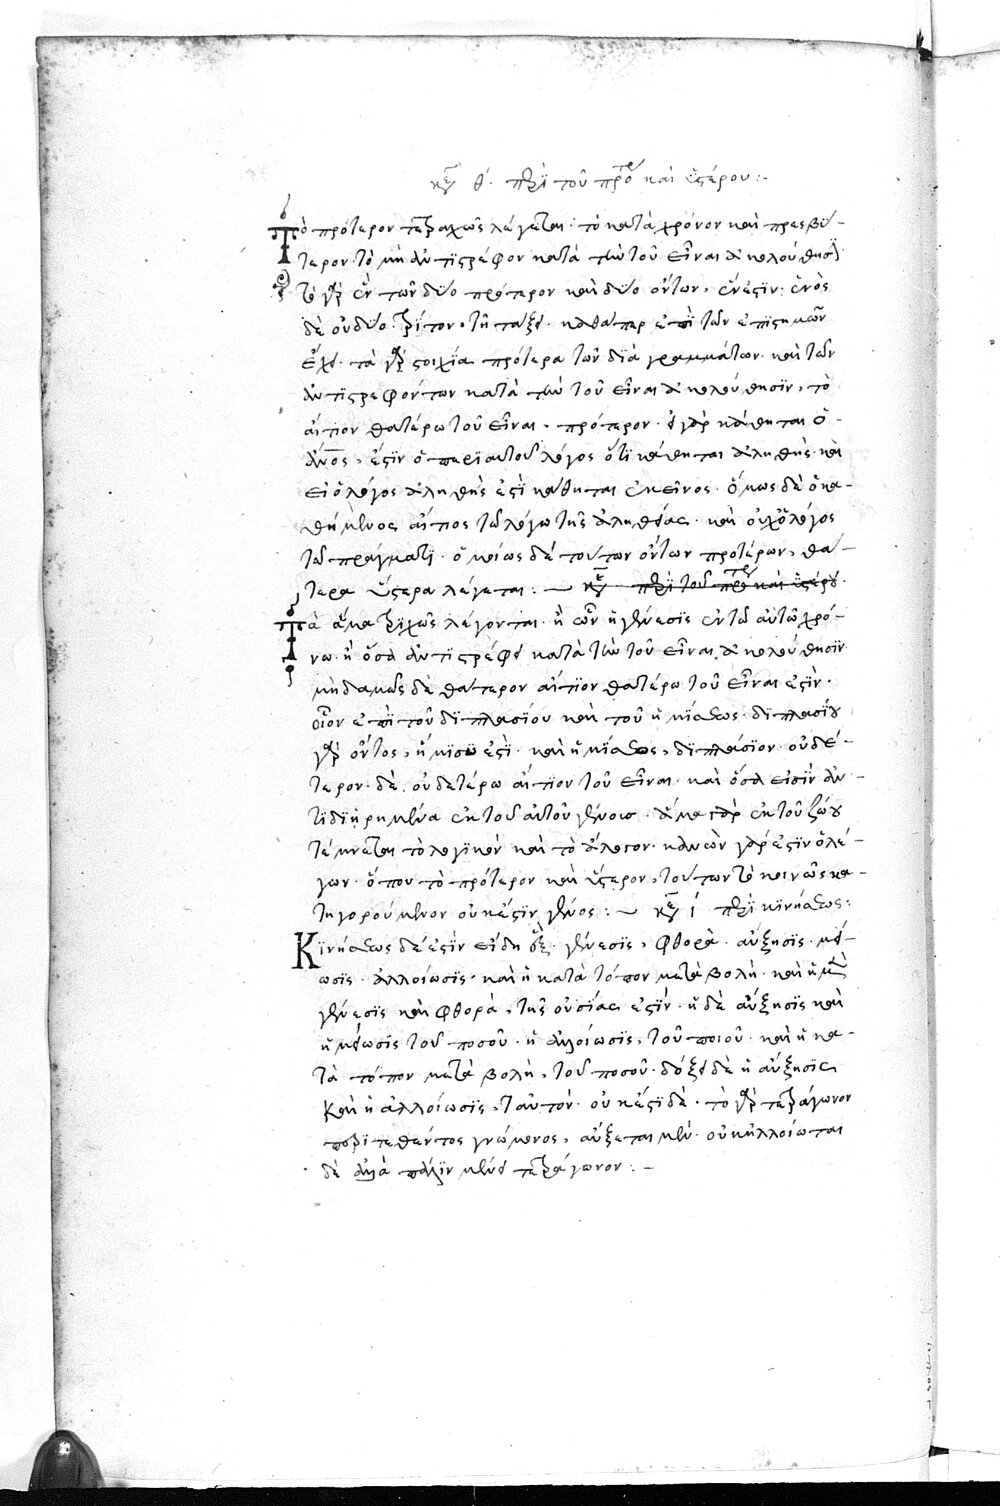 κεφ θ. περὶ τοῦ προτέρου καὶ ὑστέρου :-
Τὸ πρότερον τετραχῶς λέγεται· τὸ κατὰ χρόνον καὶ πρεσβύ-
τερον· τὸ μὴ ἀντιστρέφον κατὰ τὴν τοῦ εἶναι ἀκολούθησιν·
τὸ γὰρ ἓν τῶν δύο πρότερον καὶ δύο ὄντων, ἕν ἐστιν· ἑνὸς
δὲ οὐ δύο· τρίτον, τῇ τάξει· καθάπερ ἐπὶ τῶν ἐπιστημῶν
ἔχει· τὰ γὰρ στοιχεῖα πρότερα τῶν διὰ γραμμάτων· καὶ τῶν
ἀντιστρεφόντων κατὰ τὴν τοῦ εἶναι ἀκολούθησιν, τὸ
αἴτιον θατέρω τοῦ εἶναι, πρότερον· εἰ γὰρ κάθηται ὁ
ἄνος, ἔστιν ὁ περὶ αὐτοῦ λόγος ὅτι κάθηται ἀληθής· καὶ
εἰ ὁ λόγος ἀληθὴς ἐστὶ κάθηται ἐκεῖνος· ὅμως δὲ ὁ κα-
θήμενος αἴτιος τῶ λόγω τῆς ἀληθείας· καὶ οὐχ ὁ λόγος
τῶ πράγματι· ὁμοίως δὲ τούτων ὄντων προτέρων, θά-
τερα ὕστερα λέγεται :- κεφ περὶ τοῦ προτέρου καὶ ὑστέρου·
Τὰ ἅμα τριχῶς λέγονται· ἢ ὧν ἡ γένεσις ἐν τῶ αὐτῶ χρό-
νω· ἢ ὅσα ἀντιστρέφει κατὰ τὴν τοῦ εἶναι ἀκολούθησιν·
μηδαμῶς δὲ θάτερον αἴτιον θατέρω τοῦ εἶναι ἐστὶν·
οἷον ἐπὶ τοῦ διπλασίου καὶ τοῦ ἡμίσεως· διπλασίου
γὰρ ὄντος, ἥμισυ ἐστὶ· καὶ ἡμίσεως, διπλάσιον· οὐδέ-
τερον δὲ οὐδετέρω αἴτιον τοῦ εἶναι· καὶ ὅσα εἰσὶν ἀν-
τιδιηρημένα ἐκ τοῦ αὐτοῦ γένους· ἅμα γὰρ ἐκ τοῦ ζώου
τέμνεται τὸ λογικὸν καὶ τὸ ἄλογον· κἀνεὼν γάρ ἐστιν ὁ λέ-
γων· ὅπου τὸ πρότερον καὶ ὕστερον, τούτων τὸ κοινῶς κα-
τηγορούμενον οὐκ ἔστιν γένος :- κεφ ί περὶ κινήσεως :
Κινήσεως δέ ἐστιν εἴδη ἕξ· γένεσις, φθορὰ· αὔξησις· μεί-
ωσις· ἀλλοίωσις· καὶ ἡ κατὰ τόπον μεταβολή· καὶ ἡ μὲν
γένεσις καὶ φθορὰ, τῆς οὐσίας ἐστὶν· ἡ δὲ αὔξησις καὶ
ἡ μείωσις τοῦ ποσοῦ· ἡ ἀλλοίωσις, τοῦ ποιοῦ· καὶ ἡ κα-
τὰ τόπον μεταβολὴ, τοῦ ποσοῦ· δόξει δὲ ἡ αὔξησις
καὶ ἡ ἀλλοίωσις, ταυτὸν· οὐκ ἔστι δὲ· τὸ γὰρ τετράγωνον
περιτεθέντος γνώμονος, αὔξεται μὲν· οὐκ ἠλλοίωται
δὲ ἀλλὰ πάλιν μένει τετράγωνον :-